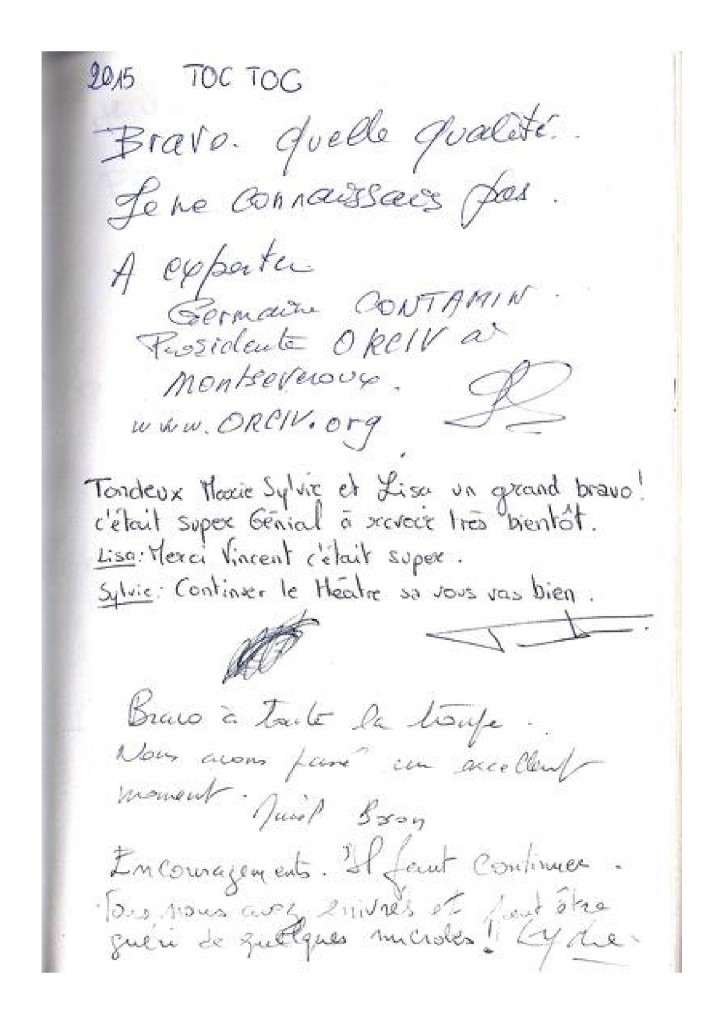 2015 TOC TOC
Bravo. Quelle qualité..
Je ne connaissais pas.
A exporter
Germaine CONTAMIN.
Présidente ORCIV à
Montseveroux.
www.ORCIV.org
Tondeux Marie Sylvie et Lisa un grand bravo!
c'était super Génial à revoir très bientôt.
Lisa: Merci Vincent c'était super.
Sylvie: Continuer le théâtre sa vous vas bien.
Bravo à toute la troupe.
Nous avons passé un excellent
moment.
Encouragements. Il faut continuer.
Vous nous avez enivrés et peut être
guéri de quelques microbes!